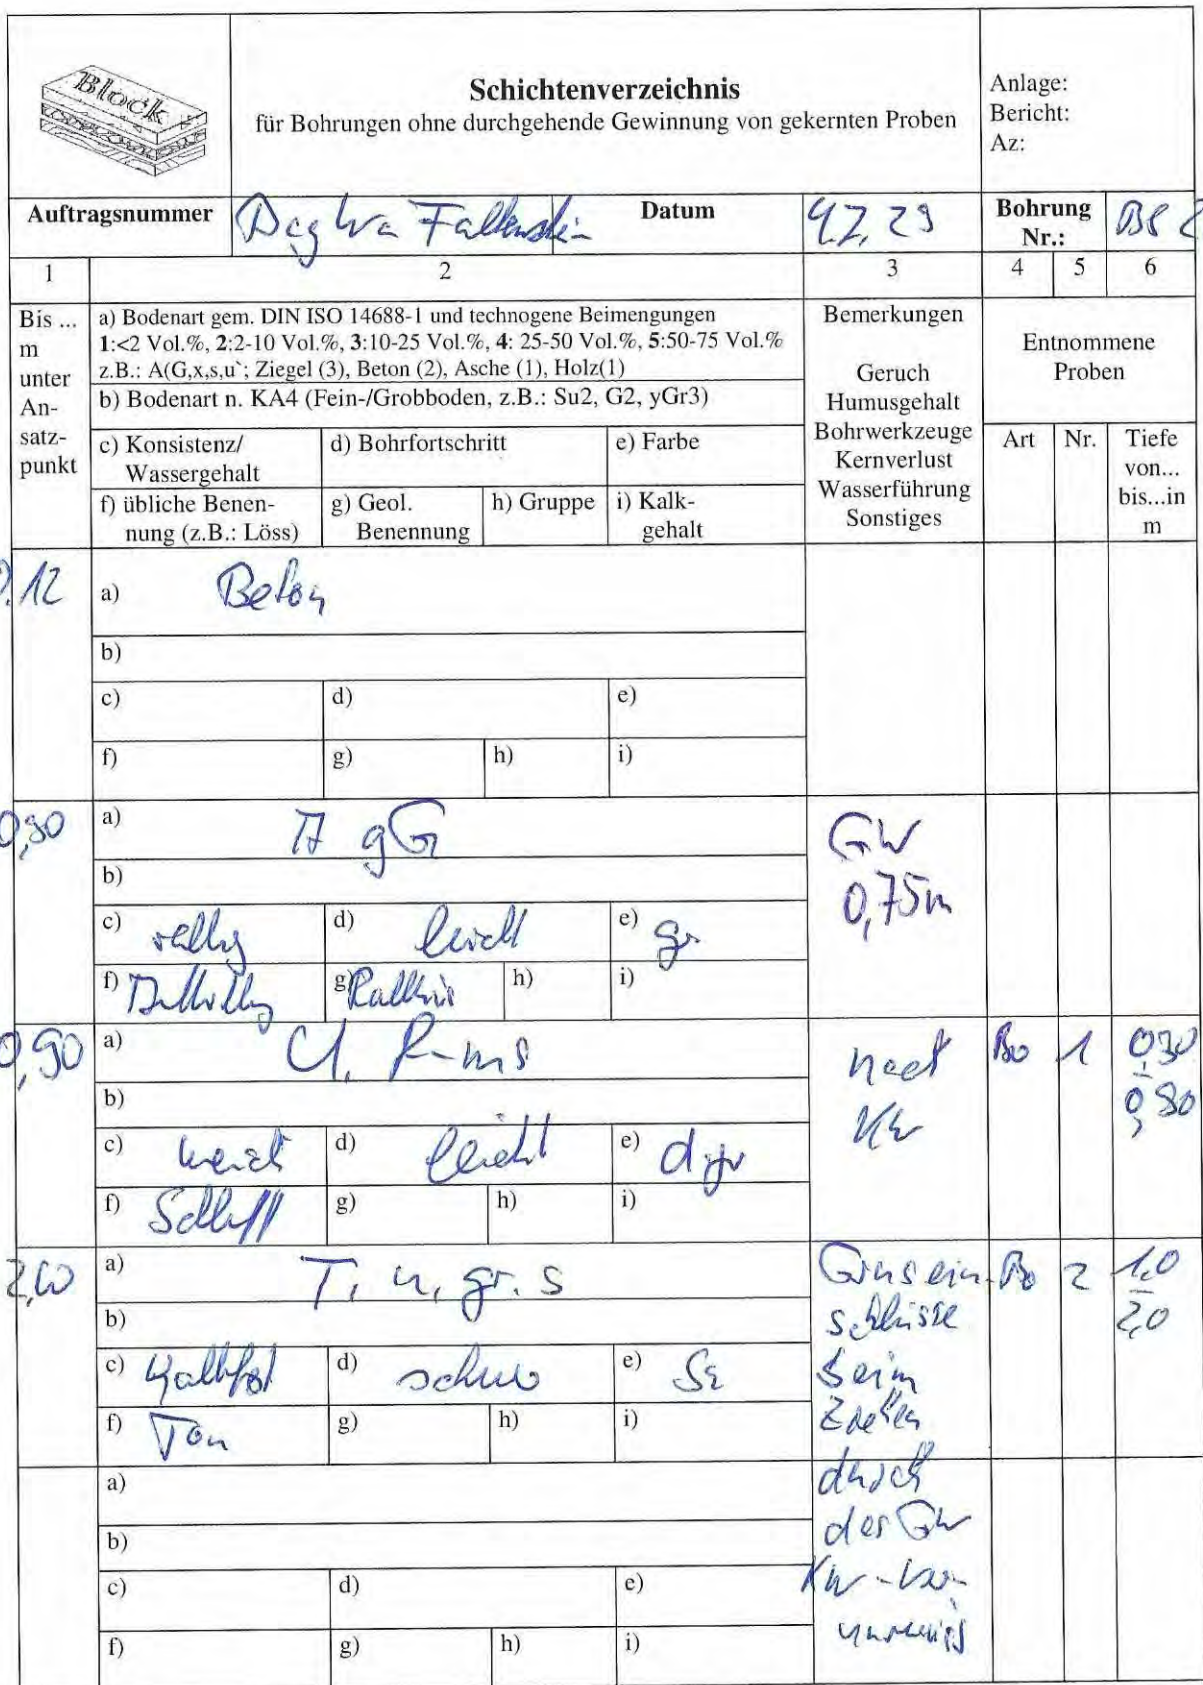 Block
Schichtenverzeichnis
für Bohrungen ohne durchgehende Gewinnung von gekernten Proben
Anlage:
Bericht:
Az:
Auftragsnummer
Datum
Bohrung
Nr.:
1 2 3 4 5 6
Bis ...
m
unter
An-
satz-
punkt
a) Bodenart gem. DIN ISO 14688-1 und technogene Beimengungen
1:<2 Vol.%, 2:2-10 Vol.%, 3:10-25 Vol.%, 4: 25-50 Vol.%, 5:50-75 Vol.%
z.B.: A(G,x,s,u`; Ziegel (3), Beton (2), Asche (1), Holz(1)
b) Bodenart n. KA4 (Fein-/Grobboden, z.B.: Su2, G2, yGr3)
c) Konsistenz/
Wassergehalt
d) Bohrfortschritt
e) Farbe
f) übliche Benen-
nung (z.B.: Löss)
g) Geol.
Benennung
h) Gruppe
i) Kalk-
gehalt
Bemerkungen
Geruch
Humusgehalt
Bohrwerkzeuge
Kernverlust
Wasserführung
Sonstiges
Entnommene
Proben
Art
Nr.
Tiefe
von...
bis...in
m
a) Beton
b)
c) d) e)
f) g) h) i)
a) A gG
b)
c) d) leicht e) gr
f) g) h) i)
GW
0,75m
0,90
a)
b)
c) weich d) leicht e) d gr
f) g) h) i)
nach
KW
Bo 1
a) T, u, gr. s
b)
c) halbfest d) schwer e)
f) Ton g) h) i)
Bo 2 1,0
-
2,0
einschlüsse
beim
Ziehen
durch
das GW
a)
b)
c) d) e)
f) g) h) i)